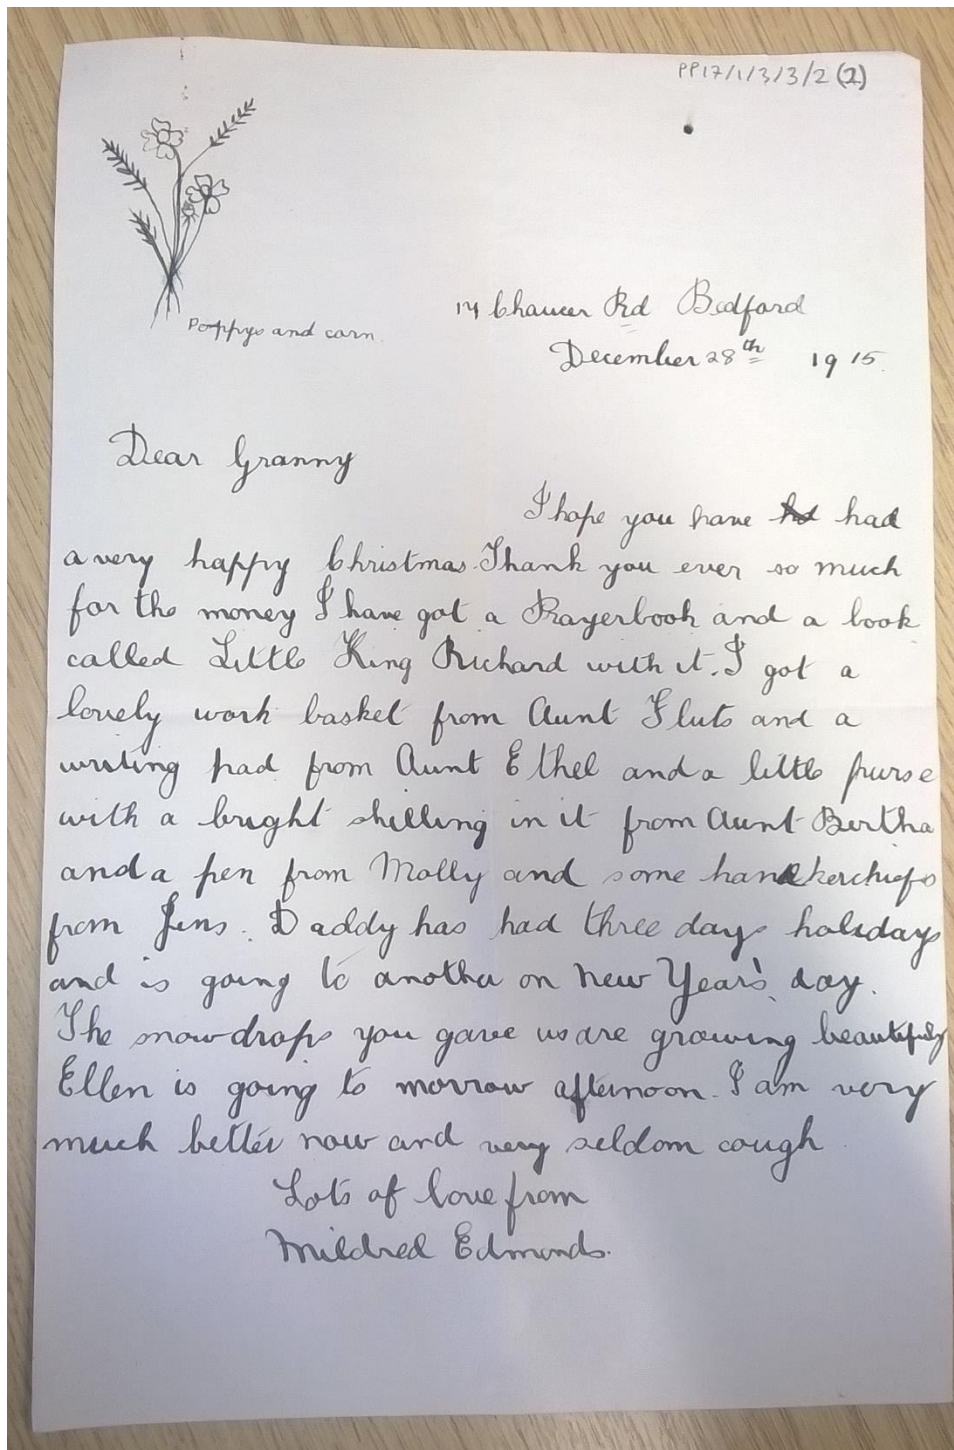 PP17/1/3/3/2 (2)
Poppys and corn.
14 Chaucer Rd Bedford
December 28th 1915.
Dear Granny
I hope you have had
a very happy Christmas. Thank you ever so much
for the money I have got a Prayerbook and a book
called Little King Richard with it. I got a
lovely work basket from Aunt and a
writing pad from Aunt Ethel and a little purse
with a bright shilling in it from Aunt Bertha
and a pen from Molly and some handkerchiefs
from . Daddy has had three days holidays
and is going to another on New Year's day.
The snowdrops you gave us are growing beautifully
Ellen is going to morrow afternoon. I am very
much better now and very seldom cough
Lots of love from
Mildred Edmonds.